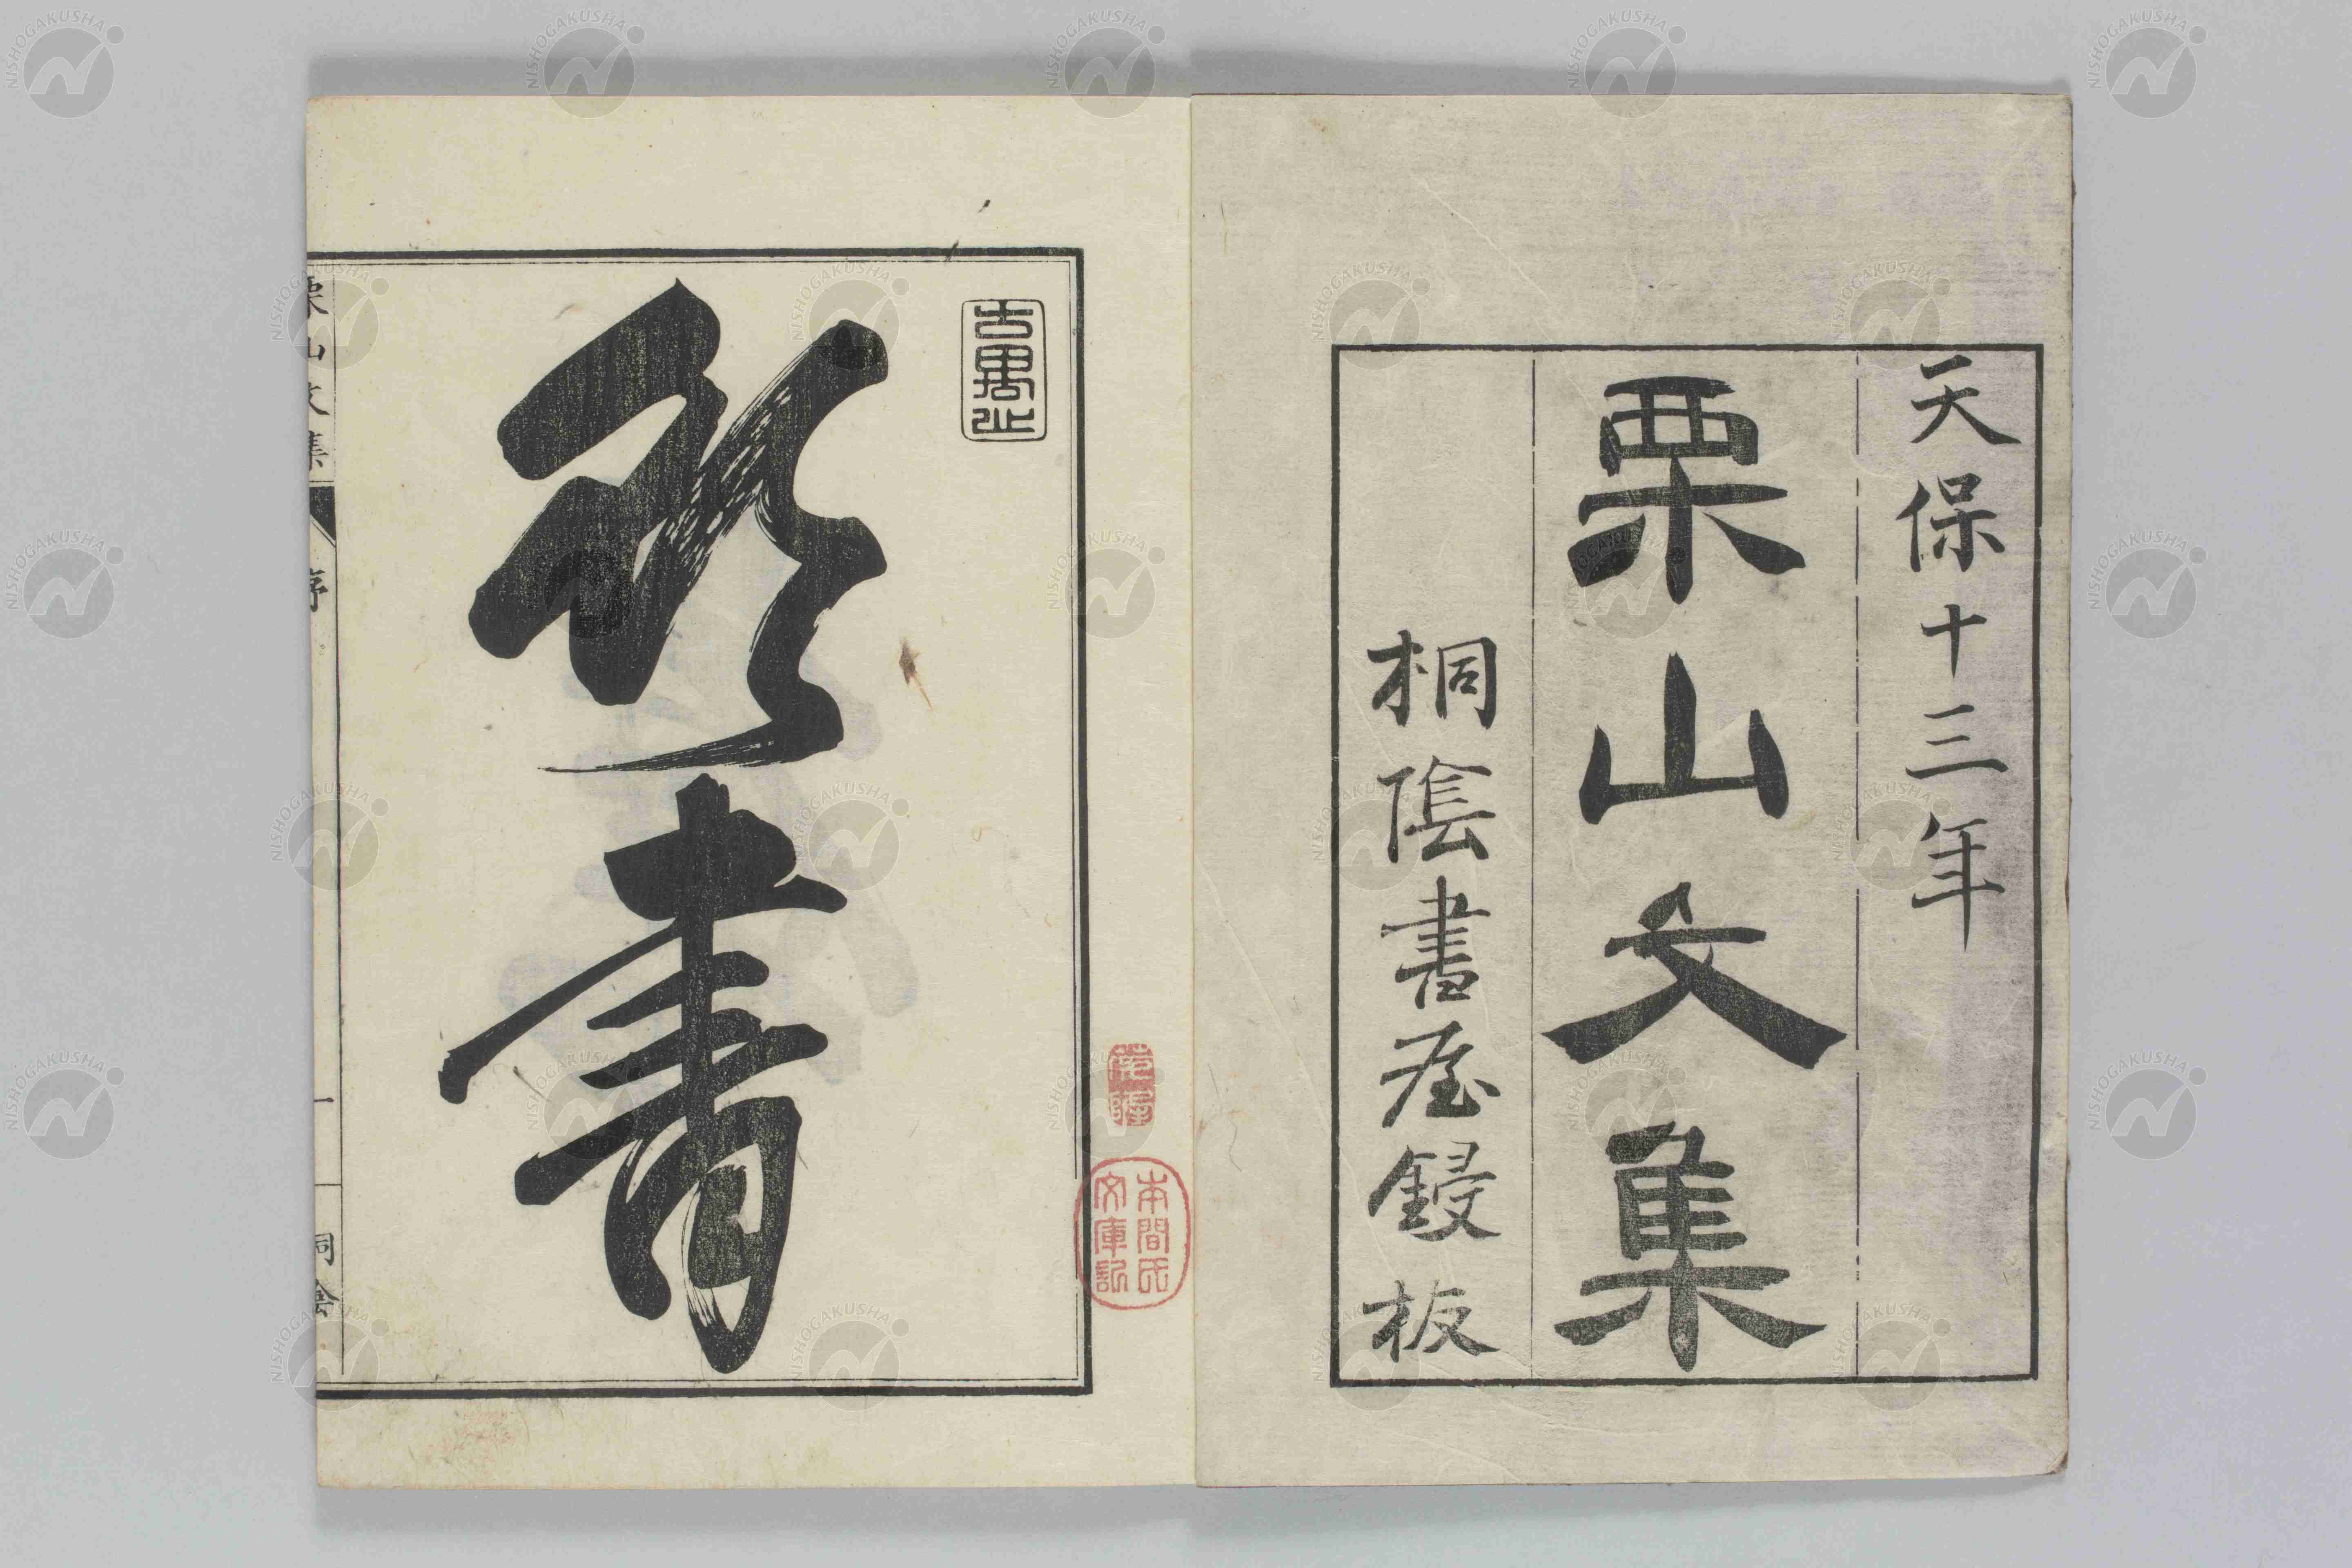 天保十三年
栗山文集
桐陰書屋鋟板
本間氏
文庫記
青
栗山文集
序
一
桐陰
NISHOGAKUSHA